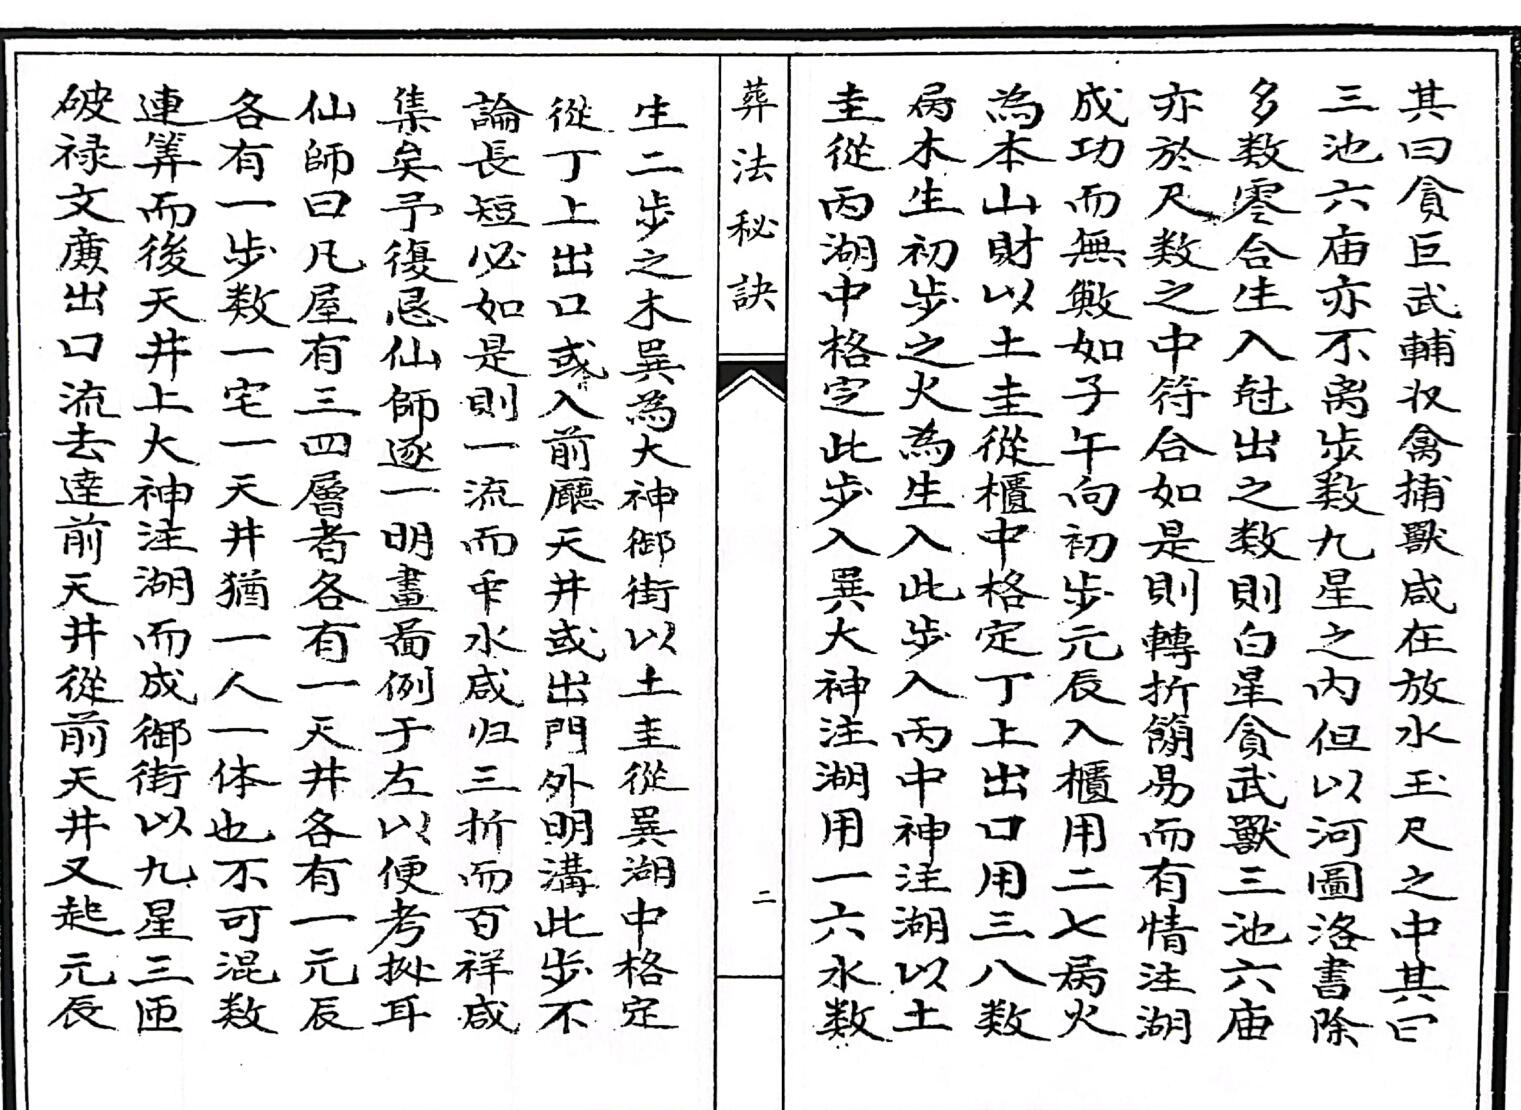 其曰貪巨武輔收禽捕獸咸在放水玉尺之中其曰
三池六庙亦不离步数九星之内但以河圖洛書除
多数零合生入尅出之数則白星貪武獸三池六庙
亦於尺数之中符合如是則轉折簡易而有情注湖
成功而無斁如子午向初步元辰入櫃用二七局火
為本山財以土圭從櫃中格定丁上出口用三八数
局木生初步之火為生入此步入丙中神注湖以土
圭從丙湖中格定此步入巽大神注湖用一六水数
葬法秘訣
二
生二步之木巽為大神御街以土圭從巽湖中格定
從丁上出口或入前廳天井或出門外明溝此步不
論長短必如是則一流而水咸归三折而百祥咸
集矣予復恳仙師逐一明畫啚例于左以便考挍耳
仙師曰凡屋有三四層者各有一天井各有一元辰
各有一步数一宅一天井猶一人一体也不可混数
連筭而後天井上大神注湖而成御街以九星三匝
破禄文廉出口流去達前天井從前天井又起元辰